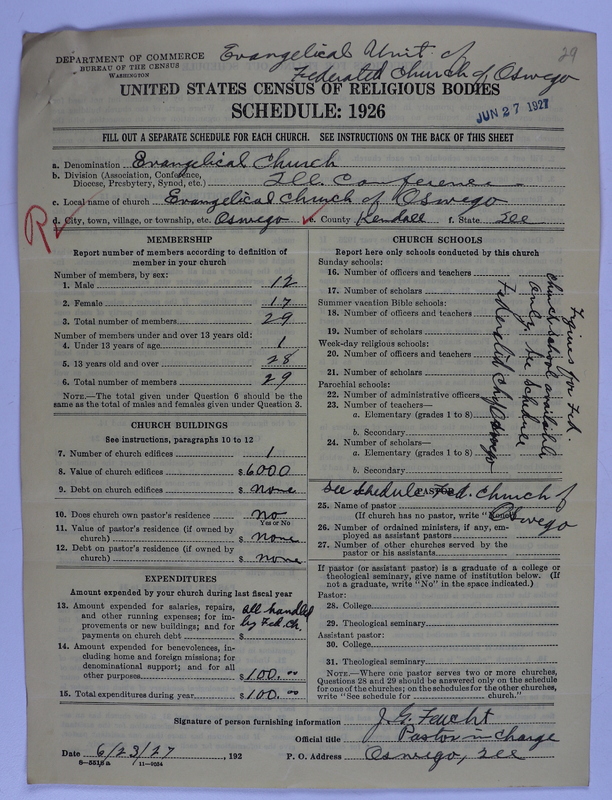 Evangelical Unit of
Federated Church of Oswego
29
DEPARTMENT OF COMMERCE
BUREAU OF THE CENSUS
WASHINGTON
UNITED STATES CENSUS OF RELIGIOUS BODIES
SCHEDULE: 1926
JUN 27 1927
FILL OUT A SEPARATE SCHEDULE FOR EACH CHURCH. SEE INSTRUCTIONS ON THE BACK OF THIS SHEET
a. Denomination Evangelical Church
b. Division (Association, Conference,
Diocese, Presbytery, Synod, etc.) Ill. Conference
c. Local name of church Evangelical Church of Oswego
R
d. City, town, village, or township, etc. Oswego e. County Kendall f. State Ill
MEMBERSHIP
Report number of members according to definition of
member in your church
Number of members, by sex:
1. Male 12
2. Female 17
3. Total number of members 29
Number of members under and over 13 years old:
4. Under 13 years of age 1
5. 13 years old and over 28
6. Total number of members 29
NOTE.—The total given under Question 6 should be the
same as the total of males and females given under Question 3.
CHURCH BUILDINGS
See instructions, paragraphs 10 to 12
7. Number of church edifices 1
8. Value of church edifices $6000
9. Debt on church edifices $ None
10. Does church own pastor's residence No
Yes or No
11. Value of pastor's residence (if owned by
church) $ None
12. Debt on pastor's residence (if owned by
church) $ None
EXPENDITURES
Amount expended by your church during last fiscal year
13. Amount expended for salaries, repairs,
and other running expenses; for im-
provements or new buildings; and for
payments on church debt $
all handled
by Fed. Ch.
14. Amount expended for benevolences, in-
cluding home and foreign missions; for
denominational support; and for all
other purposes $100.00
15. Total expenditures during year $100.00
CHURCH SCHOOLS
Report here only schools conducted by this church
Sunday schools:
16. Number of officers and teachers
17. Number of scholars
Summer vacation Bible schools:
18. Number of officers and teachers
19. Number of scholars
Week-day religious schools:
20. Number of officers and teachers
21. Number of scholars
Parochial schools:
22. Number of administrative officers
23. Number of teachers—
a. Elementary (grades 1 to 8)
b. Secondary
24. Number of scholars—
a. Elementary (grades 1 to 8)
b. Secondary
Figures for Fed.
Church school available
only. See Schedule
Federated Ch, Oswego
PASTOR
See schedule Fed. Church of
Oswego
25. Name of pastor
(If church has no pastor, write "None")
26. Number of ordained ministers, if any, em-
ployed as assistant pastors
27. Number of other churches served by the
pastor or his assistants
If pastor (or assistant pastor) is a graduate of a college or
theological seminary, give name of institution below. (If
not a graduate, write "No" in the space indicated.)
Pastor:
28. College
29. Theological seminary
Assistant pastor:
30. College
31. Theological seminary
NOTE.—Where one pastor serves two or more churches,
Questions 28 and 29 should be answered only on the schedule
for one of the churches; on the schedules for the other churches,
write "See schedule for church."
Signature of person furnishing information J. G. Feucht
Official title Pastor in charge
Date 6/23/27, 192 P. O. Address Oswego, Ill
11-9264